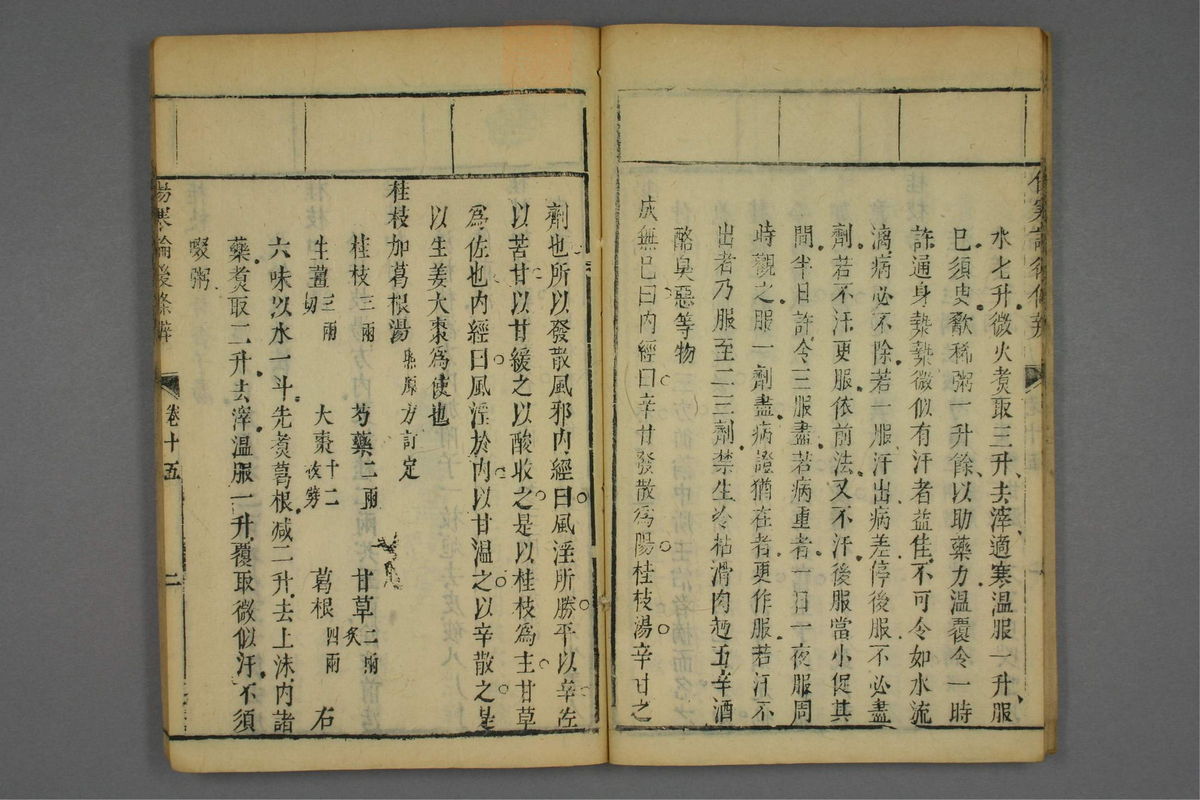 水七升微火煮取三升去滓適寒溫服一升服
已須臾歠稀粥一升餘以助藥力溫覆令一時
許通身漐漐微似有汗者益佳不可令如水流
漓病必不除若一服汗出病差停後服不必盡
劑若不汗更服依前法又不汗後服當小促其
間半日許令三服盡若病重者一日一夜服周
時觀之服一劑盡病證猶在者更作服若汗不
出者乃服至二三劑禁生冷粘滑肉麪五辛酒
酪臭惡等物
成無已曰內經曰辛甘發散爲陽桂枝湯辛甘之
劑也所以發散風邪內經曰風淫所勝平以辛佐
以苦甘以甘緩之以酸收之是以桂枝爲主甘草
爲佐也內經曰風淫於內以甘溫之以辛散之是
以生姜大棗爲使也
桂枝加葛根湯 照原方訂定
桂枝三兩 芍藥二兩 甘草二兩炙
生薑三兩切 大棗十二枚劈 葛根四兩 右
六味以水一斗先煮葛根减二升去上沫內諸
藥煮取二升去滓溫服一升覆取微似汗不須
啜粥
傷寒論後條辨
卷十五
二